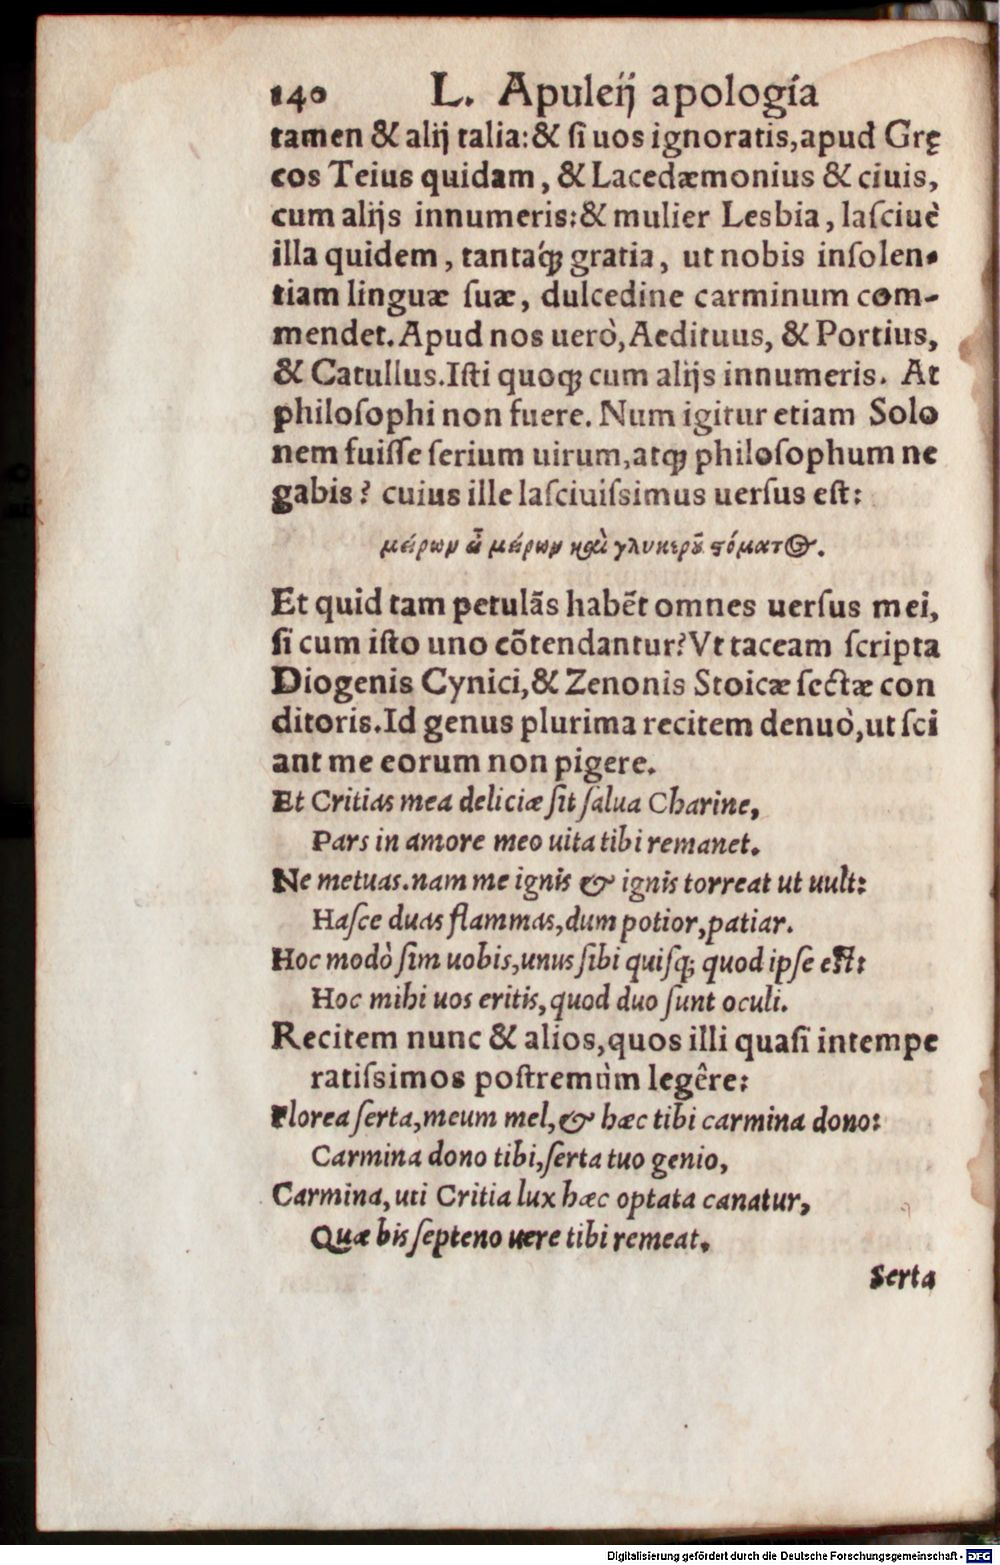 140 L. Apuleij apología
tamen & alij talia: & ſi uos ignoratis, apud Grę
cos Teius quidam, & Lacedæmonius & ciuis,
cum alijs innumeris: & mulier Lesbia, laſciuè
illa quidem, tantaq́ꝫ gratia, ut nobis inſolen-
tiam linguæ ſuæ, dulcedine carminum com-
mendet. Apud nos uerò, Aedituus, & Portius,
& Catullus. Iſti quoqꝫ cum alijs innumeris. At
philoſophi non fuere. Num igitur etiam Solo
nem fuiſſe ſerium uirum, atqꝫ philoſophum ne
gabis? cuius ille laſciuiſsimus uerſus eſt:
μείρων ἢ μείρων καὶ γλυκεροῦ στόματος.
Et quid tam petulãs habẽt omnes uerſus mei,
ſi cum iſto uno cõtendantur? Vt taceam ſcripta
Diogenis Cynici, & Zenonis Stoicæ ſectæ con
ditoris. Id genus plurima recitem denuò, ut ſci
ant me eorum non pigere.
Et Critias mea deliciæ ſit ſalua Charine,
Pars in amore meo uita tibi remanet.
Ne metuas. nam me ignis & ignis torreat ut uult:
Haſce duas flammas, dum potior, patiar.
Hoc modò ſim uobis, unus ſibi quiſqꝫ quod ipſe eſt:
Hoc mihi uos eritis, quod duo ſunt oculi.
Recitem nunc & alios, quos illi quaſi intempe
ratiſsimos poſtremùm legêre:
Florea ſerta, meum mel, & hæc tibi carmina dono:
Carmina dono tibi, ſerta tuo genio,
Carmina, uti Critia lux hæc optata canatur,
Quæ bis ſepteno uere tibi remeat.
Serta
Digitalisierung gefördert durch die Deutsche Forschungsgemeinschaft - DFG